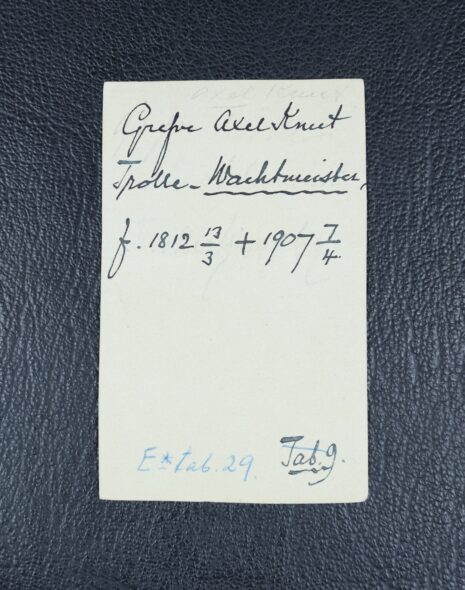 Axel Knut
Grefve Axel Knut
Trolle-Wachtmeister,
f. 1812 13/3 + 1907 7/4
E* tab. 29. Tab. 9.